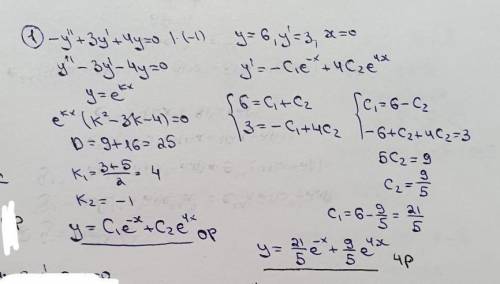 ① -y''+3y'+4y=0 |·(-1)
y''-3y'-4y=0
y=e^{kx}
e^{kx}(k²-3k-4)=0
D=9+16=25
k₁=\frac{3+5}{2}=4
k₂=-1
y=C₁e^{-x}+C₂e^{4x} OP
y=6, y'=3, x=0
y'=-C₁e^{-x}+4C₂e^{4x}
{6=C₁+C₂
3=-C₁+4C₂
{C₁=6-C₂
-6+C₂+4C₂=3
5C₂=9
C₂=\frac{9}{5}
C₁=6-\frac{9}{5}=\frac{21}{5}
y=\frac{21}{5}e^{-x}+\frac{9}{5}e^{4x} ЧР